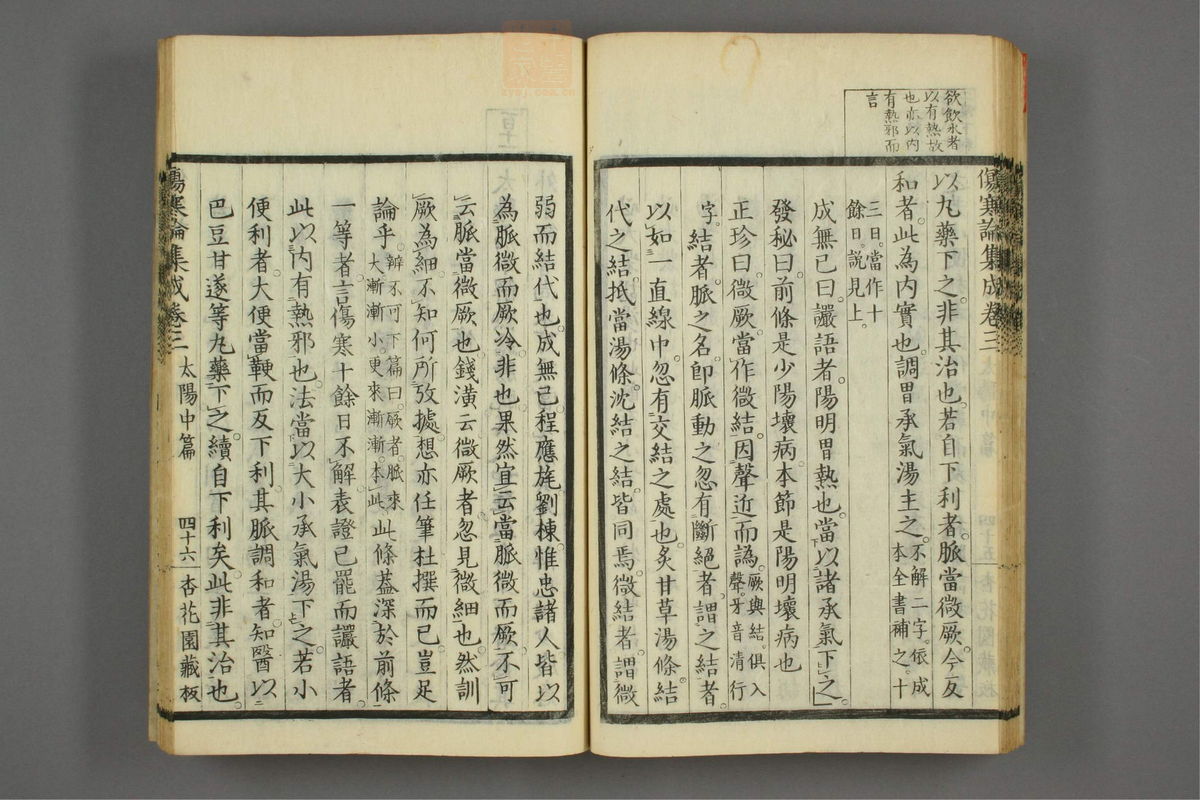 欲飲水者
以有熱故
也亦以内
有熱邪而
言
傷寒論集成卷三
以丸藥下之。非其治也。若自下利者。脈當微厥。今反
和者。此為内實也。調胃承氣湯主之。不解二字。依成本全書補之。十
三日。當作十
餘日。說見上。
成無已曰。讝語者。陽明胃熱也。當以諸承氣下之。
發秘曰。前條是少陽壞病。本節是陽明壞病也
正珍曰。微厥。當作微結。因聲近而譌。厥與結。俱入聲。牙音清行
字。結者。脈之名。卽脈動之忽有斷絕者。謂之結者。
以如一直線中。忽有交結之處也。炙甘草湯條結
代之結。抵當湯條沈結之結。皆同焉。微結者。謂微
弱而結代也。成無已。程應旄。劉棟。惟忠諸人。皆以
為脈微而厥冷。非也。果然。宜云當脈微而厥。不可
云脈當微厥也。錢潢云。微厥者。忽見微細也。然訓
厥為細。不知何所攷據。想亦任筆杜撰而已。豈足
論乎。辨不可下篇曰。厥者。脈來大。漸漸小。更來漸漸。本此。此條蓋深於前條
一等者。言傷寒十餘日不解。表證已罷而讝語者。
此以内有熱邪也。法當以大小承氣湯下之。若小
便利者。大便當鞕而反下利。其脈調和者。知醫以
巴豆甘遂等丸藥下之。續自下利矣。此非其治也。
傷寒論集成卷三 太陽中篇 四十六 杏花園藏板